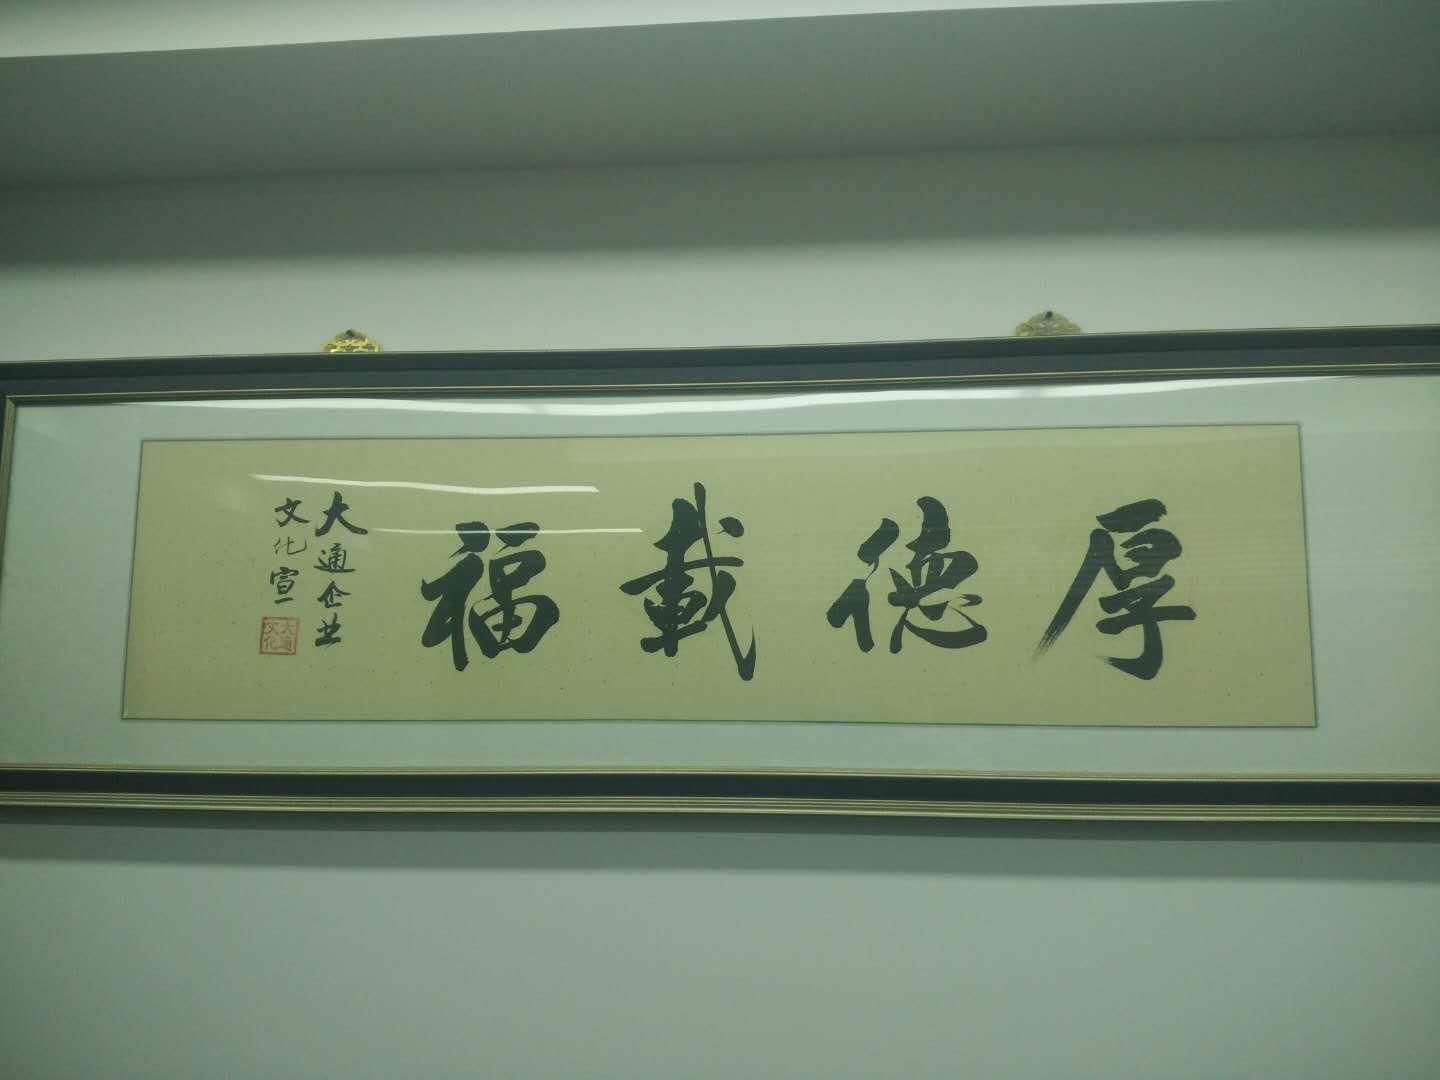 厚德載福
大通企业
文化宣
大通
文化